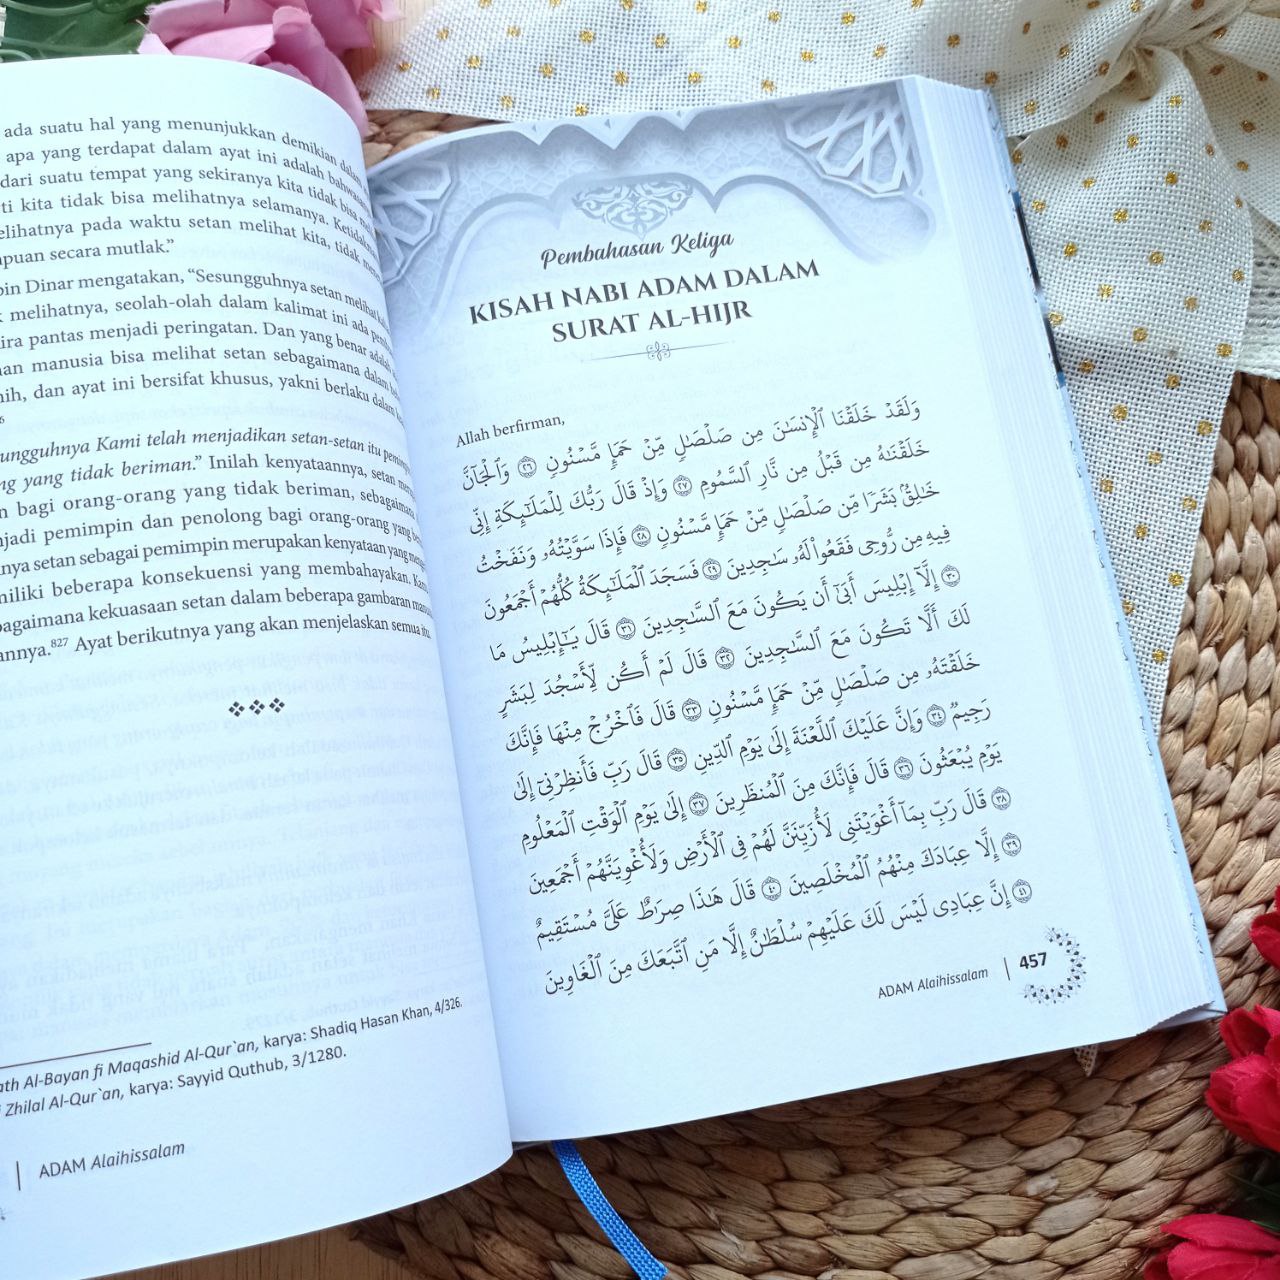 ada suatu hal yang menunjukkan demikian dalam
apa yang terdapat dalam ayat ini adalah bahwasanya
dari suatu tempat yang sekiranya kita tidak bisa
kita tidak bisa melihatnya selamanya.
pada waktu setan melihat kita, tidak
secara mutlak.”
bin Dinar mengatakan, “Sesungguhnya setan melihat
melihatnya, seolah-olah dalam kalimat ini ada
pantas menjadi peringatan. Dan yang benar adalah
manusia bisa melihat setan sebagaimana dalam
dan ayat ini bersifat khusus, yakni berlaku dalam
Kami telah menjadikan setan-setan itu
yang tidak beriman.” Inilah kenyataannya, setan
bagi orang-orang yang tidak beriman, sebagaimana
pemimpin dan penolong bagi orang-orang yang
setan sebagai pemimpin merupakan kenyataan yang
beberapa konsekuensi yang membahayakan.
kekuasaan setan dalam beberapa gambaran
827 Ayat berikutnya yang akan menjelaskan semua itu.
Al-Bayan fi Maqashid Al-Qur`an, karya: Shadiq Hasan Khan, 4/326.
Zhilal Al-Qur`an, karya: Sayyid Quthub, 3/1280.
| ADAM Alaihissalam
Pembahasan Ketiga
KISAH NABI ADAM DALAM
SURAT AL-HIJR
Allah berfirman,
وَلَقَدْ خَلَقْنَا ٱلْإِنسَٰنَ مِن صَلْصَٰلٍ مِّنْ حَمَإٍ مَّسْنُونٍ ٢٦ وَٱلْجَآنَّ
خَلَقْنَٰهُ مِن قَبْلُ مِن نَّارِ ٱلسَّمُومِ ٢٧ وَإِذْ قَالَ رَبُّكَ لِلْمَلَٰٓئِكَةِ إِنِّى
خَٰلِقٌۢ بَشَرًا مِّن صَلْصَٰلٍ مِّنْ حَمَإٍ مَّسْنُونٍ ٢٨ فَإِذَا سَوَّيْتُهُۥ وَنَفَخْتُ
فِيهِ مِن رُّوحِى فَقَعُوا۟ لَهُۥ سَٰجِدِينَ ٢٩ فَسَجَدَ ٱلْمَلَٰٓئِكَةُ كُلُّهُمْ أَجْمَعُونَ
٣٠ إِلَّآ إِبْلِيسَ أَبَىٰٓ أَن يَكُونَ مَعَ ٱلسَّٰجِدِينَ ٣١ قَالَ يَٰٓإِبْلِيسُ مَا
لَكَ أَلَّا تَكُونَ مَعَ ٱلسَّٰجِدِينَ ٣٢ قَالَ لَمْ أَكُن لِّأَسْجُدَ لِبَشَرٍ
خَلَقْتَهُۥ مِن صَلْصَٰلٍ مِّنْ حَمَإٍ مَّسْنُونٍ ٣٣ قَالَ فَٱخْرُجْ مِنْهَا فَإِنَّكَ
رَجِيمٌ ٣٤ وَإِنَّ عَلَيْكَ ٱللَّعْنَةَ إِلَىٰ يَوْمِ ٱلدِّينِ ٣٥ قَالَ رَبِّ فَأَنظِرْنِىٓ إِلَىٰ
يَوْمِ يُبْعَثُونَ ٣٦ قَالَ فَإِنَّكَ مِنَ ٱلْمُنظَرِينَ ٣٧ إِلَىٰ يَوْمِ ٱلْوَقْتِ ٱلْمَعْلُومِ
٣٨ قَالَ رَبِّ بِمَآ أَغْوَيْتَنِى لَأُزَيِّنَنَّ لَهُمْ فِى ٱلْأَرْضِ وَلَأُغْوِيَنَّهُمْ أَجْمَعِينَ
٣٩ إِلَّا عِبَادَكَ مِنْهُمُ ٱلْمُخْلَصِينَ ٤٠ قَالَ هَٰذَا صِرَٰطٌ عَلَىَّ مُسْتَقِيمٌ
٤١ إِنَّ عِبَادِى لَيْسَ لَكَ عَلَيْهِمْ سُلْطَٰنٌ إِلَّا مَنِ ٱتَّبَعَكَ مِنَ ٱلْغَاوِينَ
ADAM Alaihissalam | 457